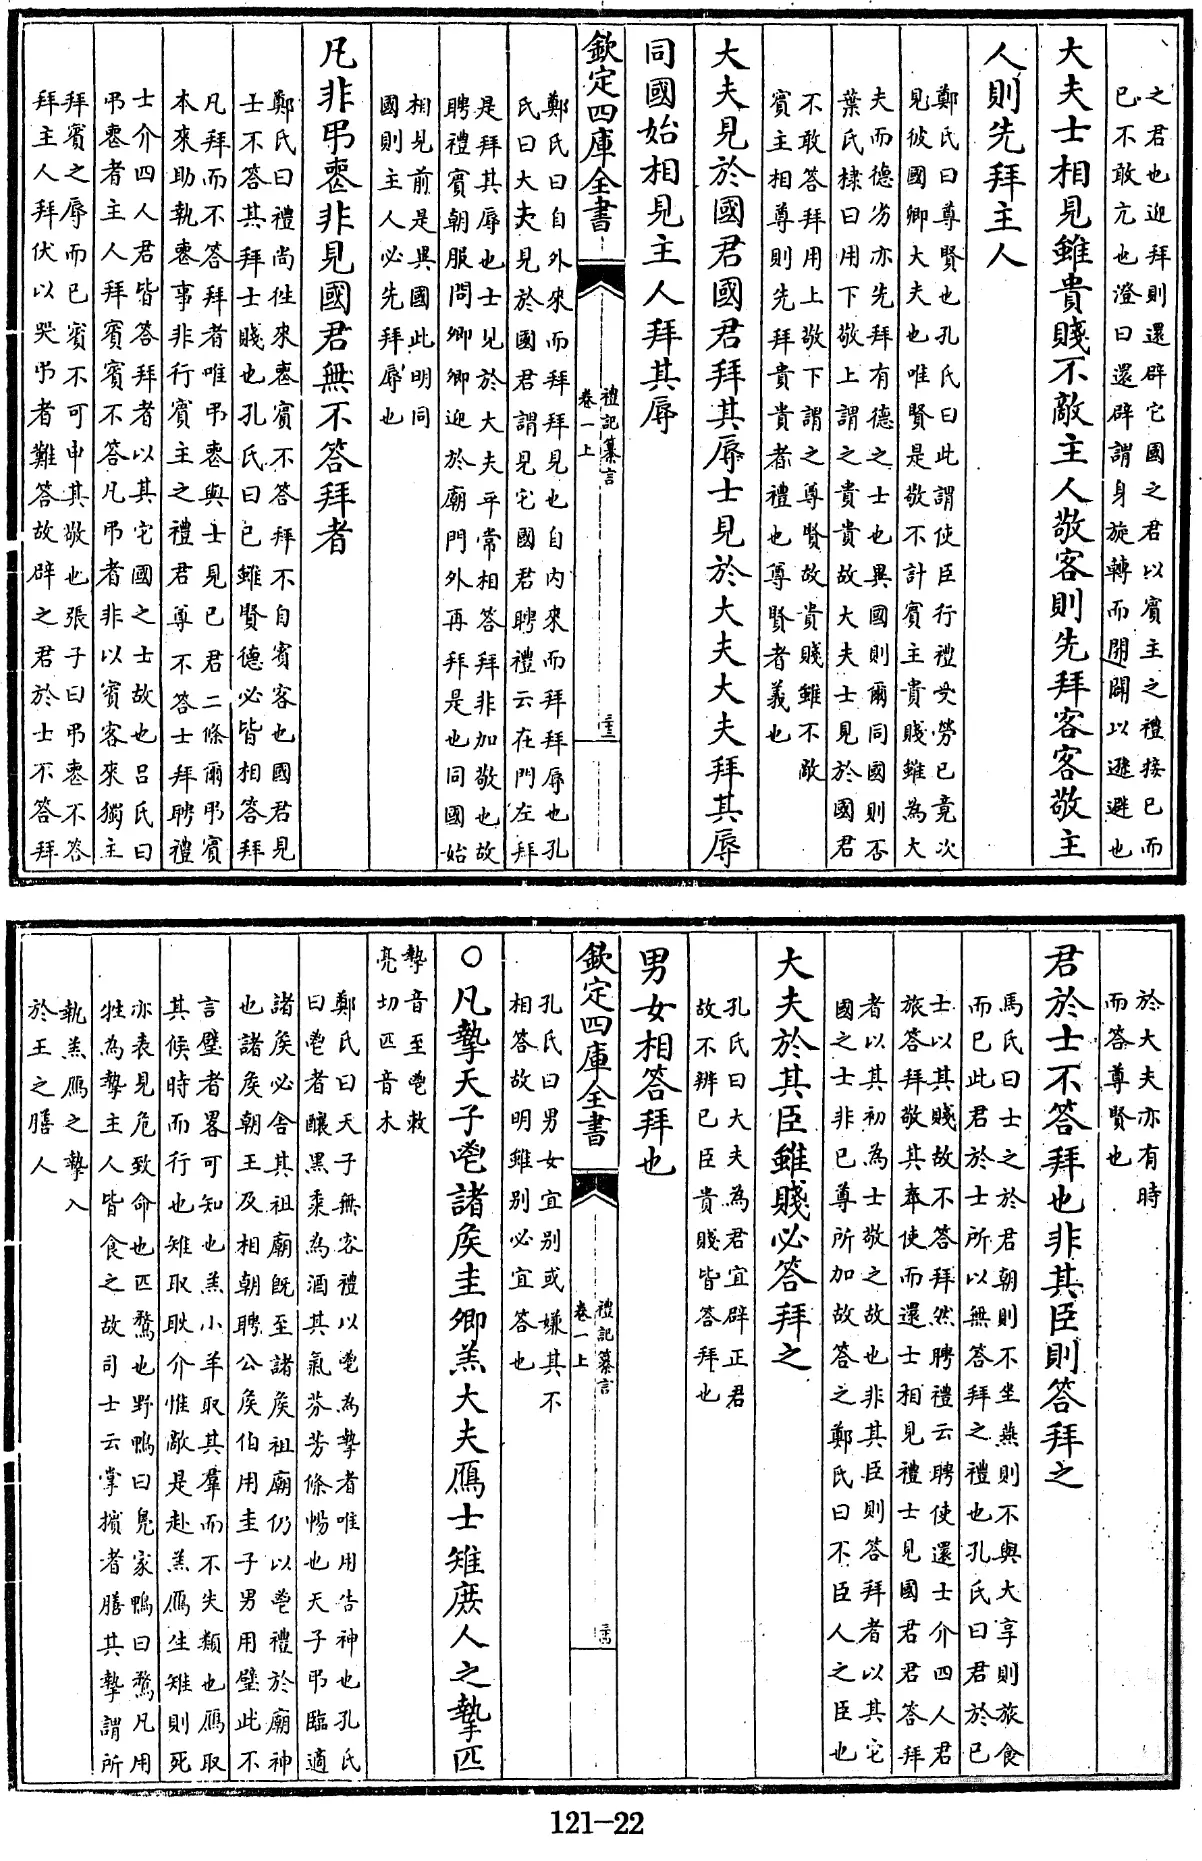 之君也迎拜則還辟它國之君以賓主之禮接已而
已不敢亢也澄曰還辟謂身旋轉而開闢以遜避也
大夫士相見雖貴賤不敵主人敬客則先拜客客敬主
人則先拜主人
鄭氏曰尊賢也孔氏曰此謂使臣行禮受勞已竟次
見彼國卿大夫也唯賢是敬不計賓主貴賤雖為大
夫而德劣亦先拜有德之士也異國則爾同國則否
葉氏棣曰用下敬上謂之貴貴故大夫士見於國君
不敢答拜用上敬下謂之尊賢故貴賤雖不敵
賓主相尊則先拜貴貴者禮也尊賢者義也
大夫見於國君國君拜其辱士見於大夫大夫拜其辱
同國始相見主人拜其辱
欽定四庫全書
禮記纂言
卷一上
三十三
鄭氏曰自外來而拜拜見也自內來而拜拜辱也孔
氏曰大夫見於國君謂見它國君聘禮云在門左拜
是拜其辱也士見於大夫平常相答拜非加敬也故
聘禮賓朝服問卿卿迎於廟門外再拜是也同國始
相見前是異國此明同
國則主人必先拜辱也
凡非弔喪非見國君無不答拜者
鄭氏曰禮尚徃來喪賓不答拜不自賓客也國君見
士不答其拜士賤也孔氏曰已雖賢德必皆相答拜
凡拜而不答拜者唯弔喪與士見已君二條爾弔賓
本來助執喪事非行賓主之禮君尊不答士拜聘禮
士介四人君皆答拜者以其它國之士故也呂氏曰
弔喪者主人拜賓賓不答凡弔者非以賓客來獨主
拜賓之辱而已賓不可申其敬也張子曰弔喪不答
拜主人拜伏以哭弔者難答故辟之君於士不答拜
於大夫亦有時
而答尊賢也
君於士不答拜也非其臣則答拜之
馬氏曰士之於君朝則不坐燕則不與大享則旅食
而已此君於士所以無答拜之禮也孔氏曰君於已
士以其賤故不答拜然聘禮云聘使還士介四人君
旅答拜敬其奉使而還士相見禮士見國君君答拜
者以其初為士敬之故也非其臣則答拜者以其它
國之士非已尊所加故答之鄭氏曰不臣人之臣也
大夫於其臣雖賤必答拜之
孔氏曰大夫為君宜辟正君
故不辨已臣貴賤皆答拜也
男女相答拜也
欽定四庫全書
禮記纂言
卷一上
三十四
孔氏曰男女宜别或嫌其不
相答故明雖别必宜答也
○凡摯天子鬯諸侯圭卿羔大夫鴈士雉庶人之摯匹
摯音至鬯敕
亮切匹音木
鄭氏曰天子無客禮以鬯為摯者唯用告神也孔氏
曰鬯者釀黑黍為酒其氣芬芳條暢也天子弔臨適
諸侯必舍其祖廟既至諸侯祖廟仍以鬯禮於廟神
也諸侯朝王及相朝聘公侯伯用圭子男用璧此不
言璧者畧可知也羔小羊取其羣而不失類也鴈取
其候時而行也雉取耿介惟敵是赴羔鴈生雉則死
亦表見危致命也匹鶩也野鴨曰鳬家鴨曰鶩凡用
牲為摯主人皆食之故司士云掌擯者膳其摯謂所
執羔鴈之摯入
於王之膳人
121-22